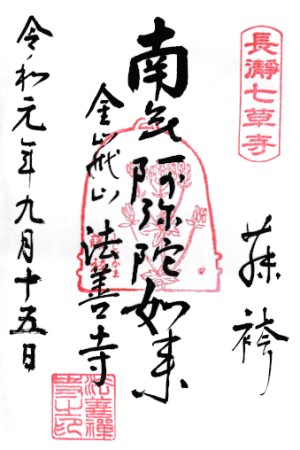 長瀞七草寺
藤袴
南無阿弥陀如来
金嶽山
法善寺
令和元年九月十五日
法善禅寺之印